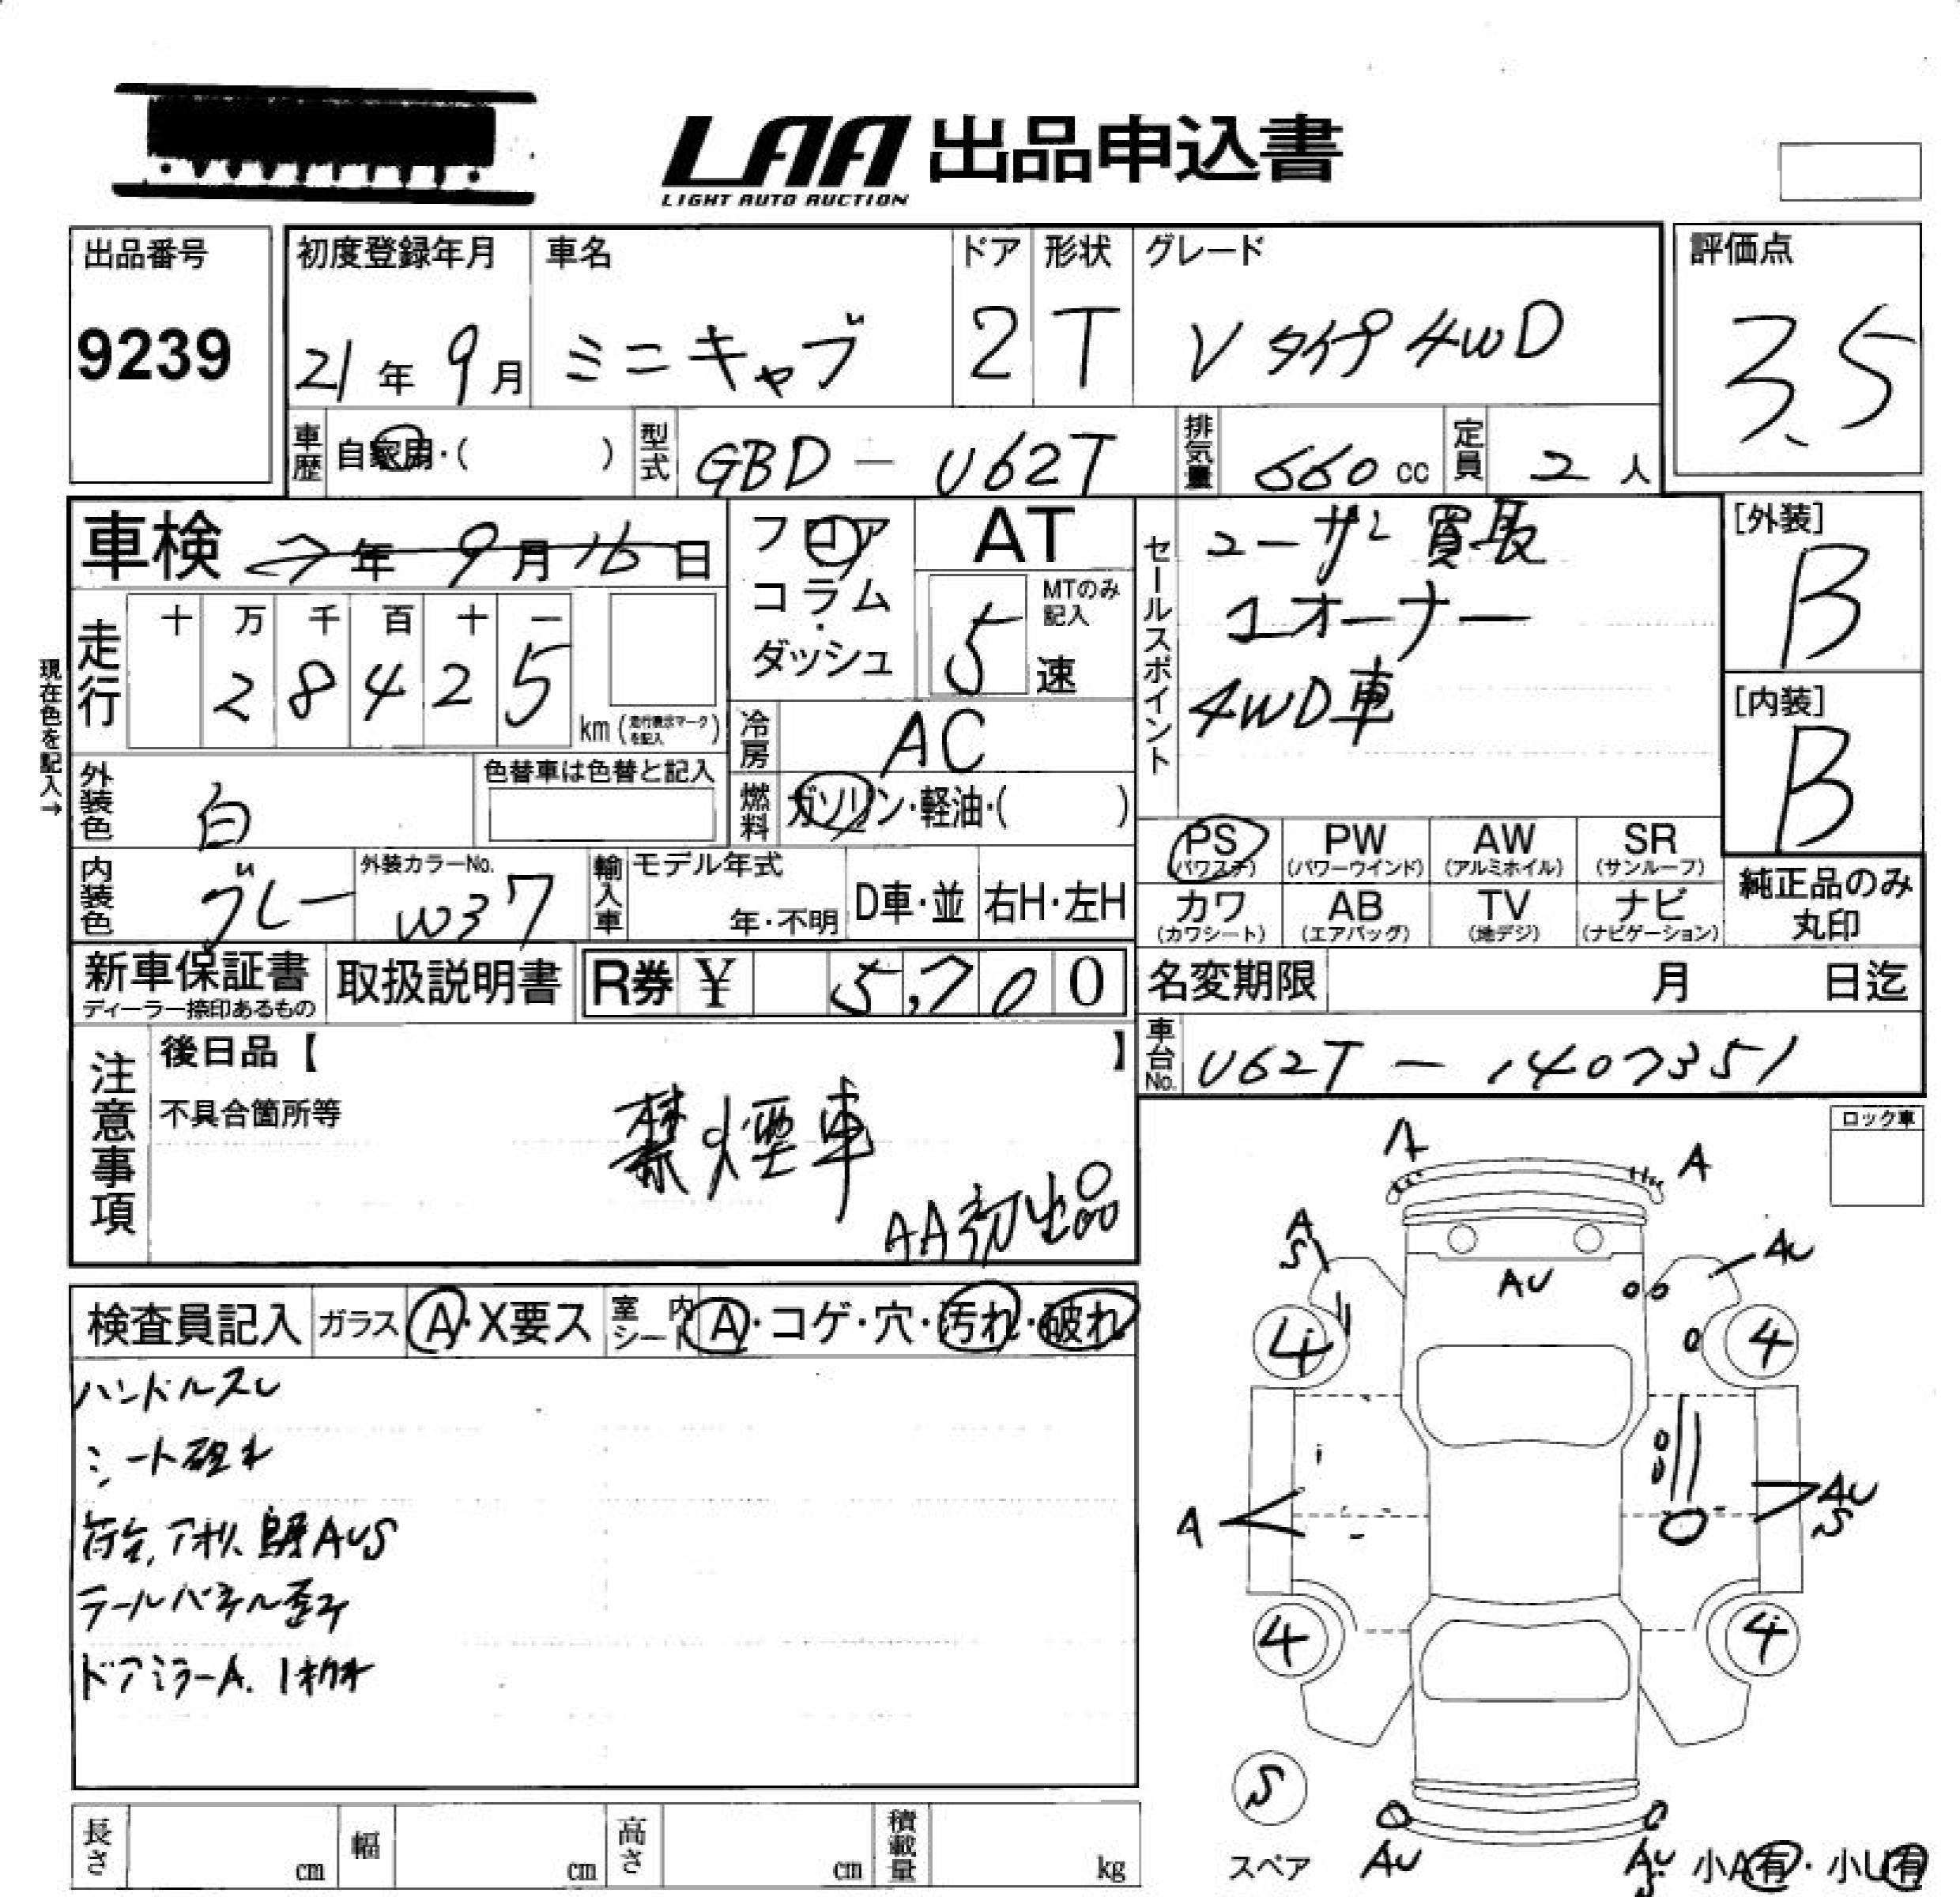 LAA 出品申込書
LIGHT AUTO AUCTION
出品番号
9239
初度登録年月
21年 9月
車名
ミニキャブ
ドア
2
形状
T
グレード
Vタイプ 4WD
評価点
3.5
車歴
自家用・( )
型式
GBD - U62T
排気量
660 cc
定員
2 人
車検 27年 9月 16日
フロア
コラム
・
ダッシュ
AT
MTのみ記入
5 速
セールスポイント
ユーザー買取
1オーナー
4WD車
[外装]
B
[内装]
B
現在色を記入→
走行
十 万 千 百 十 一
2 8 4 2 5
km (走行表示マークを記入)
冷房
AC
外装色
白
色替車は色替と記入
燃料
ガソリン・軽油・( )
PS (パワステ)
PW (パワーウインド)
AW (アルミホイル)
SR (サンルーフ)
カワ (カワシート)
AB (エアバッグ)
TV (地デジ)
ナビ (ナビゲーション)
純正品のみ
丸印
内装色
グレー
外装カラーNo.
W37
輸入車
モデル年式
年・不明
D車・並
右H・左H
新車保証書
ディーラー捺印あるもの
取扱説明書
R券 ¥ 5,700
名変期限 月 日迄
車台No.
U62T - 1407351
注意事項
後日品【 】
不具合箇所等
禁煙車
AA初出品
ロック車
検査員記入
ガラス
A・X要ス
室内シート
A・コゲ・穴・汚れ・破れ
ハンドルスレ
シート破れ
荷台、アオリ AUS
テールパネル歪み
ドアミラーA.
A
A
A
S
AU
AU
4
4
A
AU
S
4
4
S
スペア
AU
AU
S
小A有・小U有
長さ cm
幅 cm
高さ cm
積載量 kg